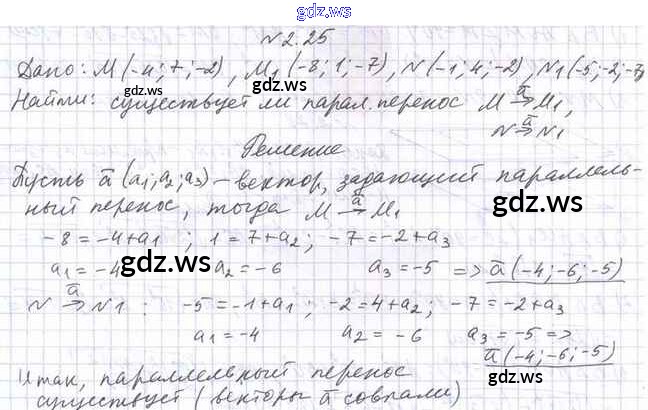 gdz.ws
№2.25
Дано: M(-4; 7; -2), M₁(-8; 1; -7), N(-1; 4; -2), N₁(-5; -2; -7)
gdz.ws gdz.ws
Найти: существует ли парал. перенос M →ā M₁,
N →ā N₁
Решение
Пусть ā (a₁; a₂; a₃) – вектор, задающий параллель-
ный перенос, тогда M →ā M₁
gdz.ws
-8 = -4+a₁ ; 1 = 7+a₂ ; -7 = -2+a₃
gdz.ws
a₁ = -4 a₂ = -6 a₃ = -5 => ā(-4; -6; -5)
N →ā N₁ : -5 = -1+a₁ ; -2 = 4+a₂ ; -7 = -2+a₃
a₁ = -4 a₂ = -6 a₃ = -5 =>
gdz.ws
ā(-4; -6; -5)
Итак, параллельный перенос
gdz.ws
существует (векторы ā совпали)
gdz.ws